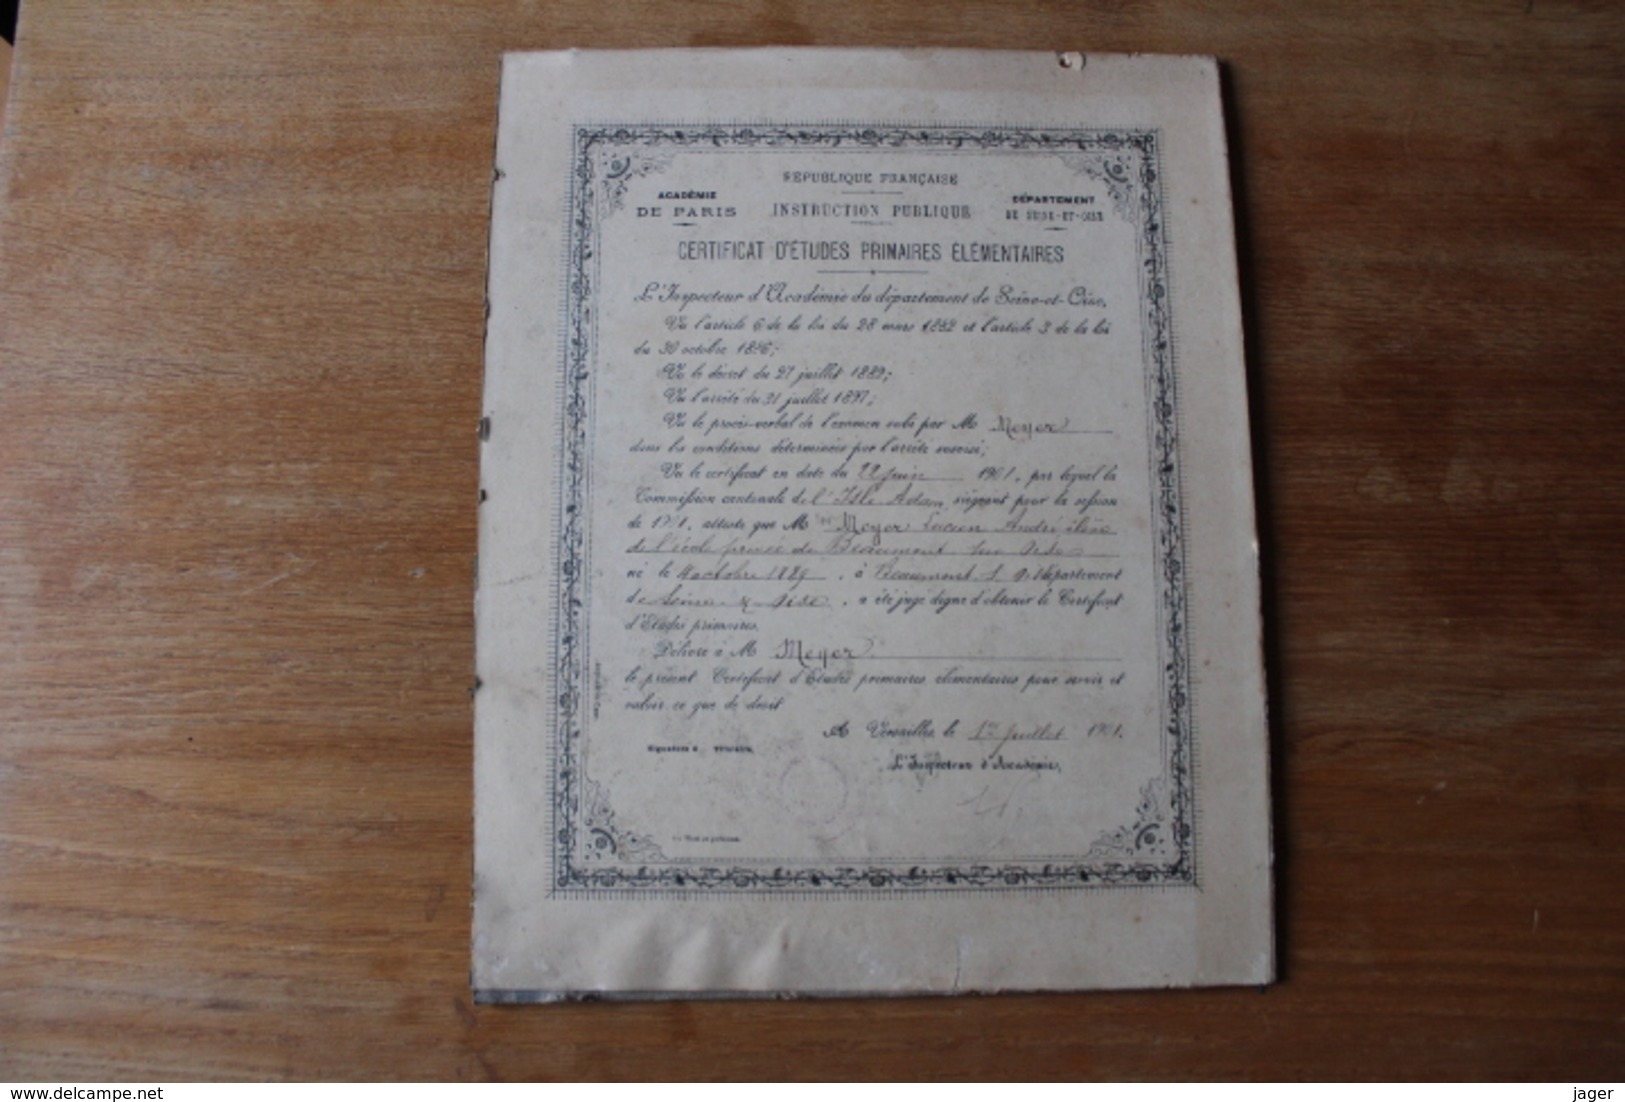 RÉPUBLIQUE FRANÇAISE
ACADÉMIE
DE PARIS
INSTRUCTION PUBLIQUE
DÉPARTEMENT
DE SEINE-ET-OISE
CERTIFICAT D'ÉTUDES PRIMAIRES ÉLÉMENTAIRES
L'Inspecteur d'Académie du département de Seine-et-Oise,
Vu l'article 6 de la loi du 28 mars 1882 et l'article 3 de la loi
du 30 octobre 1886;
Vu le décret du 27 juillet 1889;
Vu l'arrêté du 21 juillet 1897;
Vu le procès-verbal de l'examen subi par M Meyer
dans les conditions déterminées par l'arrêté susvisé;
Vu le certificat en date du 22 Juin 1901, par lequel la
Commission cantonale de l'Isle Adam, siégeant pour la session
de 1901, atteste que M Meyer Lucien André élève
de l'école privée de Beaumont sur Oise
né le 4 octobre 1889, à Beaumont s. O. département
de Seine & Oise, a été jugé digne d'obtenir le Certificat
d'Études primaires.
Délivré à M Meyer
le présent Certificat d'Études primaires élémentaires pour servir et
valoir ce que de droit.
A Versailles, le 1er Juillet 1901.
Signature d TITULAIRE,
L'Inspecteur d'Académie,
www.delcampe.net
jager